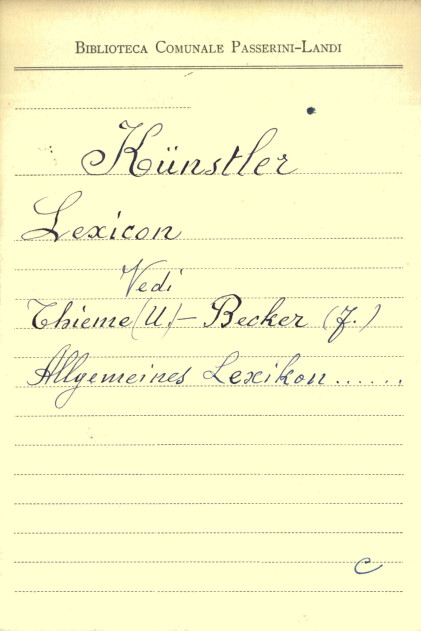 Biblioteca Comunale Passerini-Landi
Künstler
Lexicon
Vedi
Thieme (U.) - Becker (F.)
Allgemeines Lexikon......
C